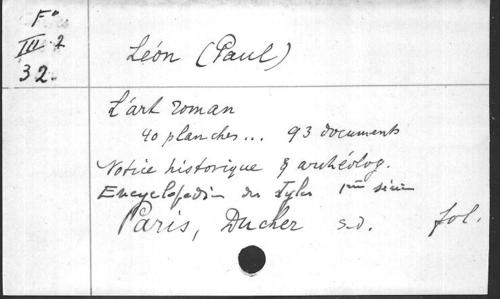 F°
III 2
32.
Léon (Paul)
L'art roman
40 planches... 93 documents
Notice historique & archéolog.
Encyclopédie des Styles
Paris, Ducher s.d. fol.